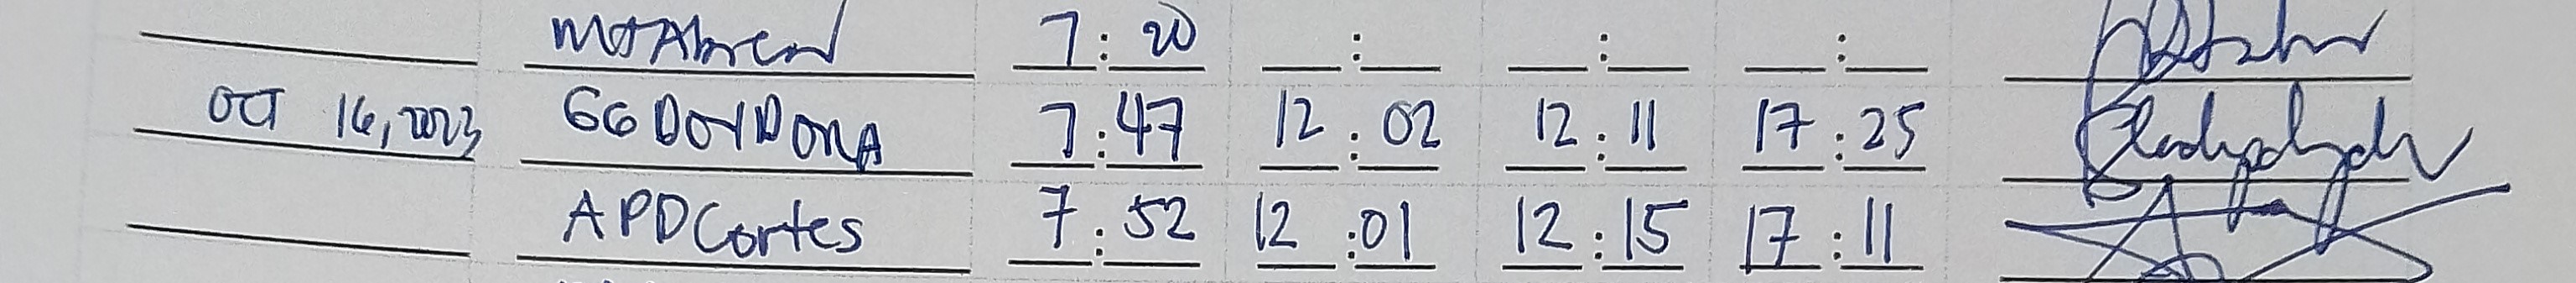 MTAbrea 7:20 : : :
OCT 16, 2023 GGDOYDORA 7:47 12:02 12:11 17:25
APDCortes 7:52 12:01 12:15 17:11